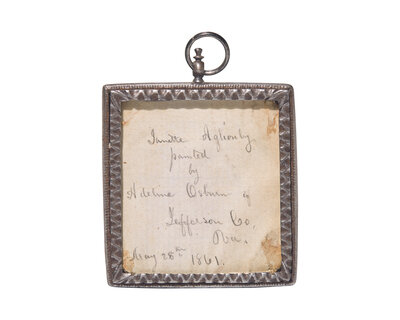 Janette Aglionby
painted
by
Adeline Osburn of
Jefferson Co,
Va.
May 28th 1861.